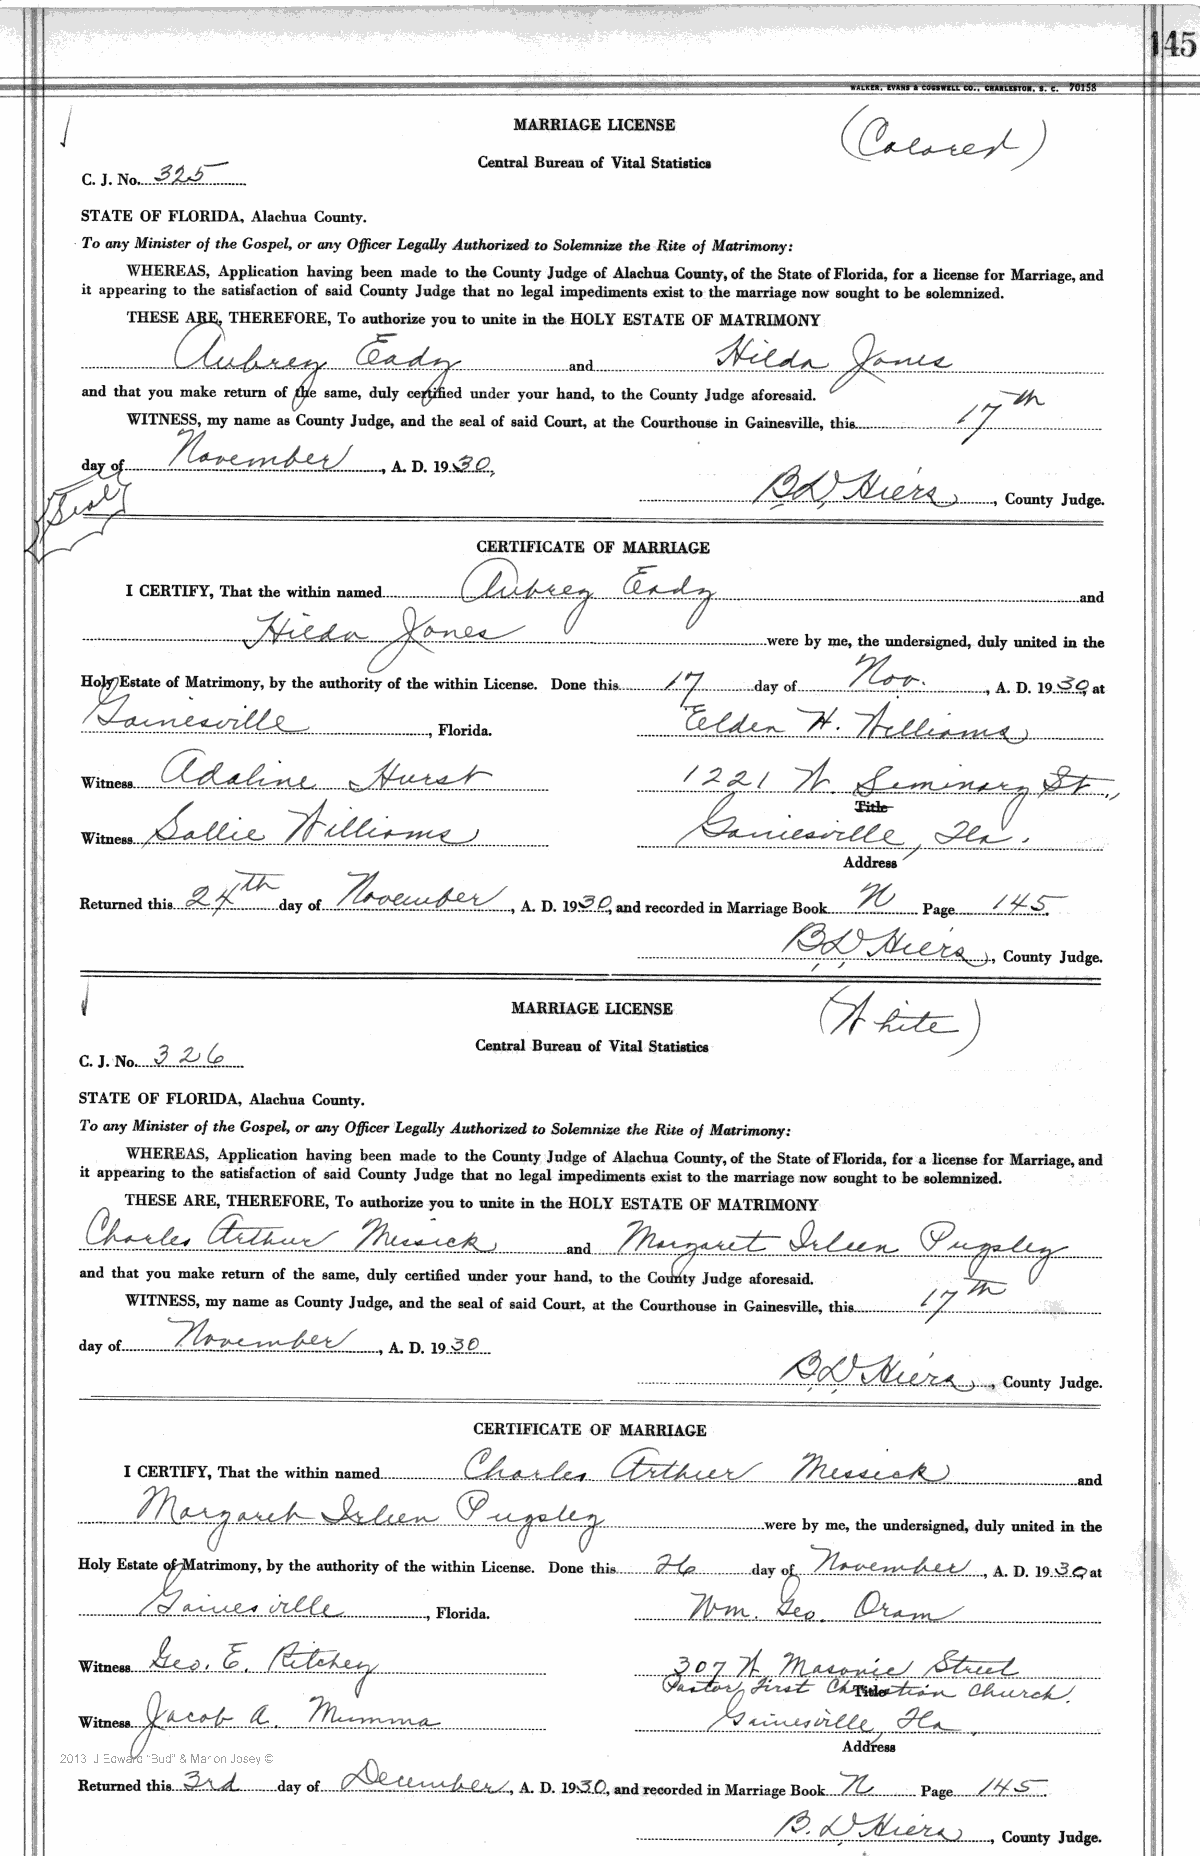 145
WALKER, EVANS & COGSWELL CO., CHARLESTON, S. C. 70158
MARRIAGE LICENSE
(Colored)
Central Bureau of Vital Statistics
C. J. No. 325
STATE OF FLORIDA, Alachua County.
To any Minister of the Gospel, or any Officer Legally Authorized to Solemnize the Rite of Matrimony:
WHEREAS, Application having been made to the County Judge of Alachua County, of the State of Florida, for a license for Marriage, and
it appearing to the satisfaction of said County Judge that no legal impediments exist to the marriage now sought to be solemnized.
THESE ARE, THEREFORE, To authorize you to unite in the HOLY ESTATE OF MATRIMONY
Aubrey Eady and Hilda Jones
and that you make return of the same, duly certified under your hand, to the County Judge aforesaid.
WITNESS, my name as County Judge, and the seal of said Court, at the Courthouse in Gainesville, this 17th
day of November, A. D. 1930,
Seal
B.D. Hiers, County Judge.
CERTIFICATE OF MARRIAGE
I CERTIFY, That the within named Aubrey Eady and
Hilda Jones were by me, the undersigned, duly united in the
Holy Estate of Matrimony, by the authority of the within License. Done this 17 day of Nov., A. D. 1930, at
Gainesville, Florida. Elden H. Williams
Witness Adaline Hurst 1221 W. Seminary St.,
Title
Witness Sallie Williams Gainesville, Fla.
Address
Returned this 24th day of November, A. D. 1930, and recorded in Marriage Book N Page 145.
B.D. Hiers, County Judge.
MARRIAGE LICENSE
(White)
Central Bureau of Vital Statistics
C. J. No. 326
STATE OF FLORIDA, Alachua County.
To any Minister of the Gospel, or any Officer Legally Authorized to Solemnize the Rite of Matrimony:
WHEREAS, Application having been made to the County Judge of Alachua County, of the State of Florida, for a license for Marriage, and
it appearing to the satisfaction of said County Judge that no legal impediments exist to the marriage now sought to be solemnized.
THESE ARE, THEREFORE, To authorize you to unite in the HOLY ESTATE OF MATRIMONY
Charles Arthur Messick and Margaret Irleen Pugsley
and that you make return of the same, duly certified under your hand, to the County Judge aforesaid.
WITNESS, my name as County Judge, and the seal of said Court, at the Courthouse in Gainesville, this 17th
day of November, A. D. 1930
B.D. Hiers, County Judge.
CERTIFICATE OF MARRIAGE
I CERTIFY, That the within named Charles Arthur Messick and
Margaret Irleen Pugsley were by me, the undersigned, duly united in the
Holy Estate of Matrimony, by the authority of the within License. Done this 26 day of November, A. D. 1930 at
Gainesville, Florida. Wm. Geo. Oram
Witness Geo. E. Ritchey 307 W Masonic Street
Pastor, First Christian Church.
Title
Witness Jacob A. Mumma Gainesville, Fla.
Address
2013 J Edward "Bud" & Marion Josey ©
Returned this 3rd day of December, A. D. 1930, and recorded in Marriage Book N Page 145.
B. D. Hiers, County Judge.